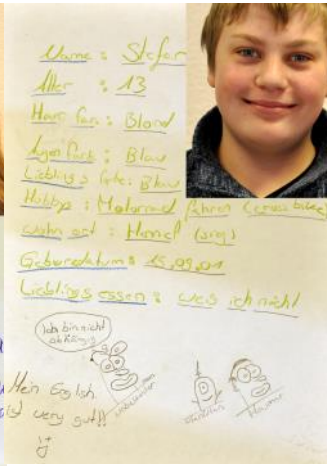 Name : Stefan
Alter : 13
Haar farbe : Blond
Augen farbe : Blau
Lieblings farbe : Blau
Hobbys : Motorrad fahren (crossbike)
Wohn ort : (sieg)
Geburtsdatum : 15,09,01
Lieblings essen : weis ich nicht
Ich bin nicht
abhängig
Mein English
ist very gut!!